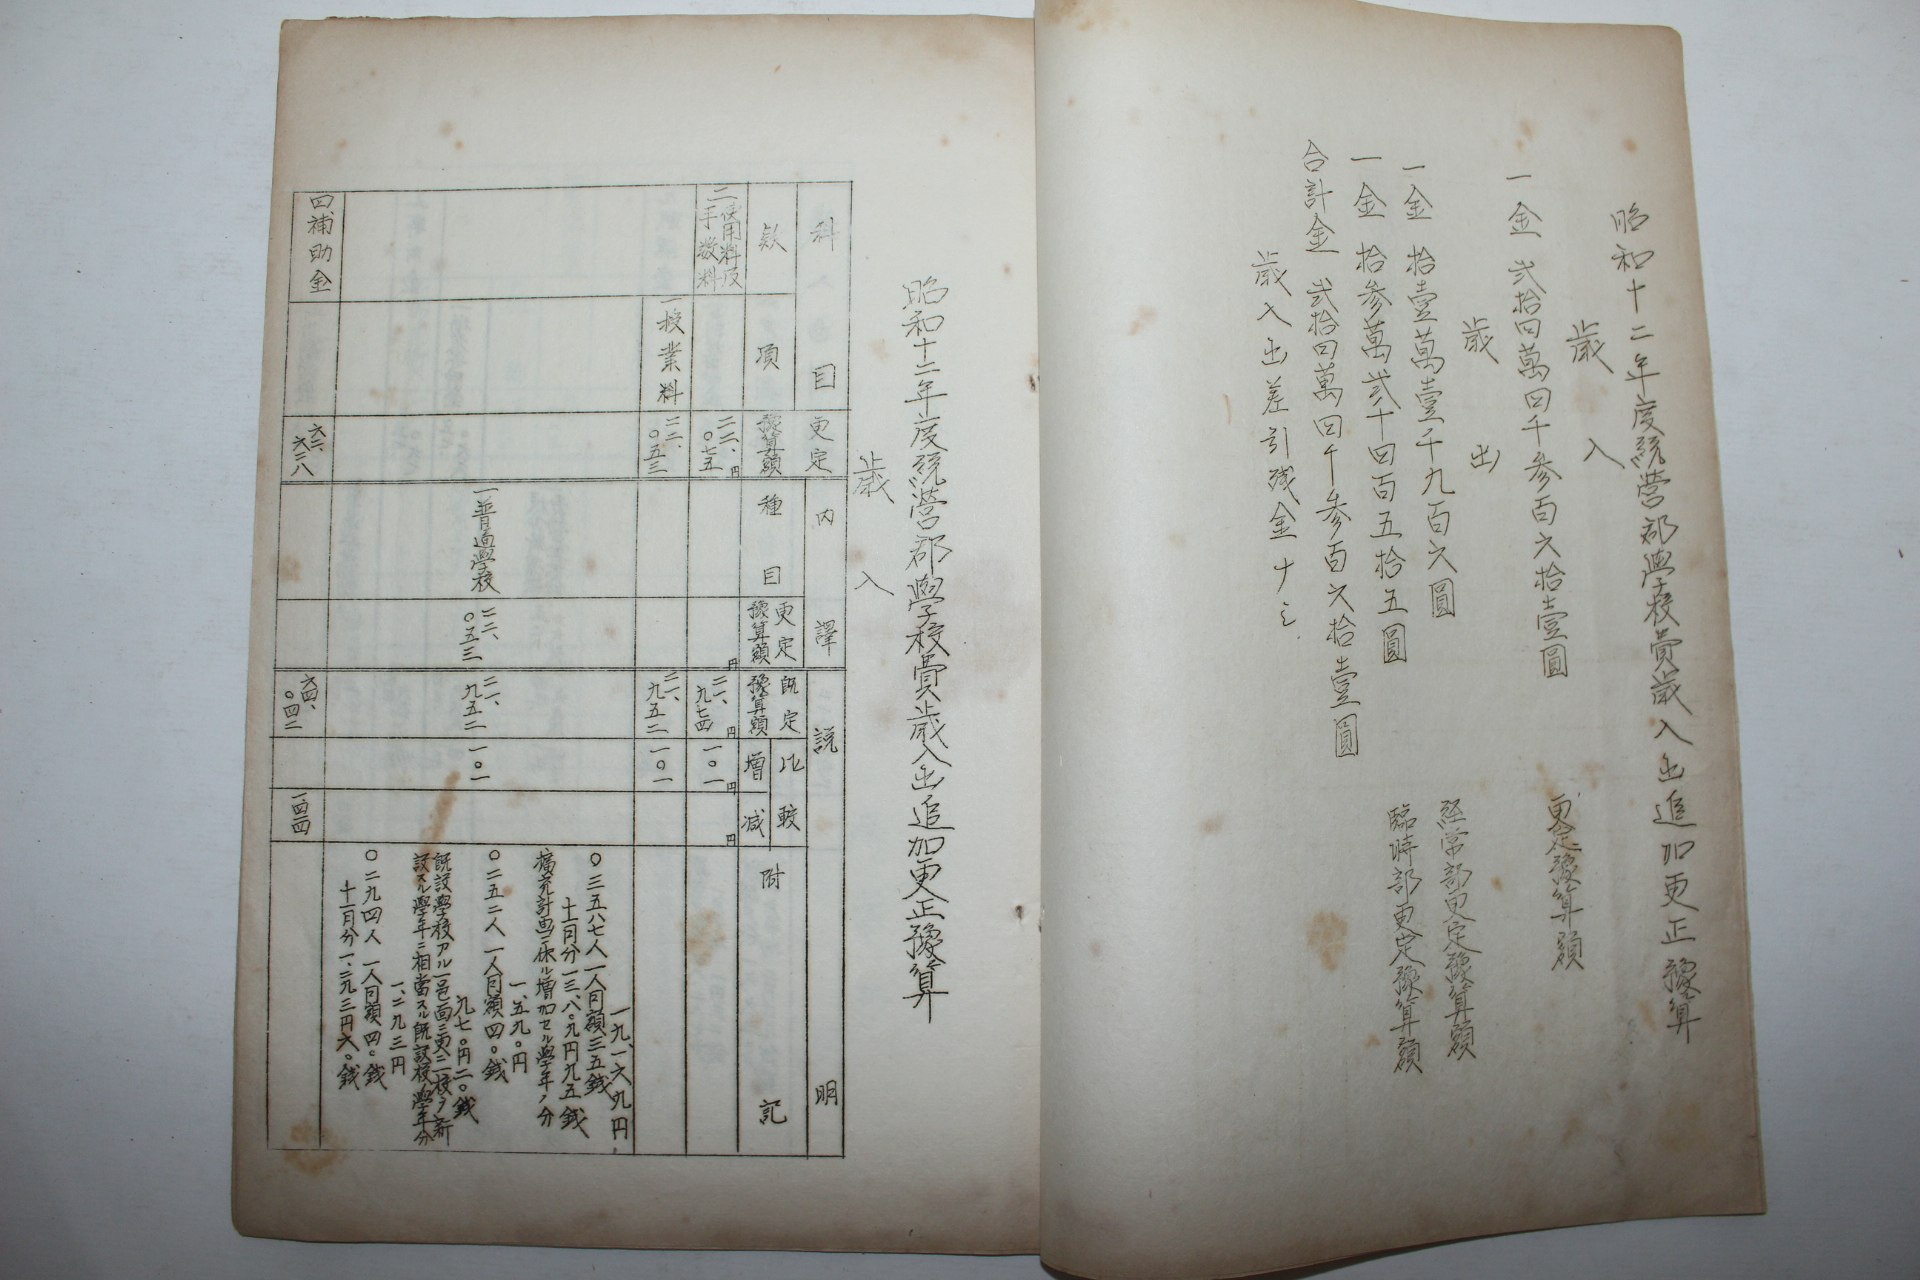 昭和十二年度統営郡學校費歳入出追加更正豫算
歳入
一金 弐拾四萬四千参百六拾壹圓 更定豫算額
歳出
一金 拾壹萬壹千九百六圓 経常部更定豫算額
一金 拾参萬弐千四百五拾五圓 臨時部更定豫算額
合計金 弐拾四萬四千参百六拾壹圓
歳入出差引残金ナシ
昭和十二年度統営郡學校費歳入出追加更正豫算
歳入
科目 内譯 説明
款 項 更定豫算額 種目 更定豫算額 既定豫算額 比較 増 減 附記
二使用料及手数料 二二、〇七五 円 円 二一、九七四 円 一〇一 円 円
一授業料 二二、〇五三 二一、九五二 一〇一
一普通學校 二二、〇五三 二一、九五二 一〇一
一九、一六九円
〇三五八七人 一人月額三五銭
十一月分一三、八〇九円九五銭
擴充計画ニ依ル増加セル學年ノ分
一、五九〇円
〇二五二人 一人月額四〇銭
九七〇円二〇銭
既設學校アル一邑面ニ更ニ一校ヲ新
設スル學年ニ相當スル既設校學年分
一、二九三円
〇二九四人 一人月額四〇銭
十一月分一、二九三円六〇銭
四補助金 六三、六三八 六四、〇四二 一四四